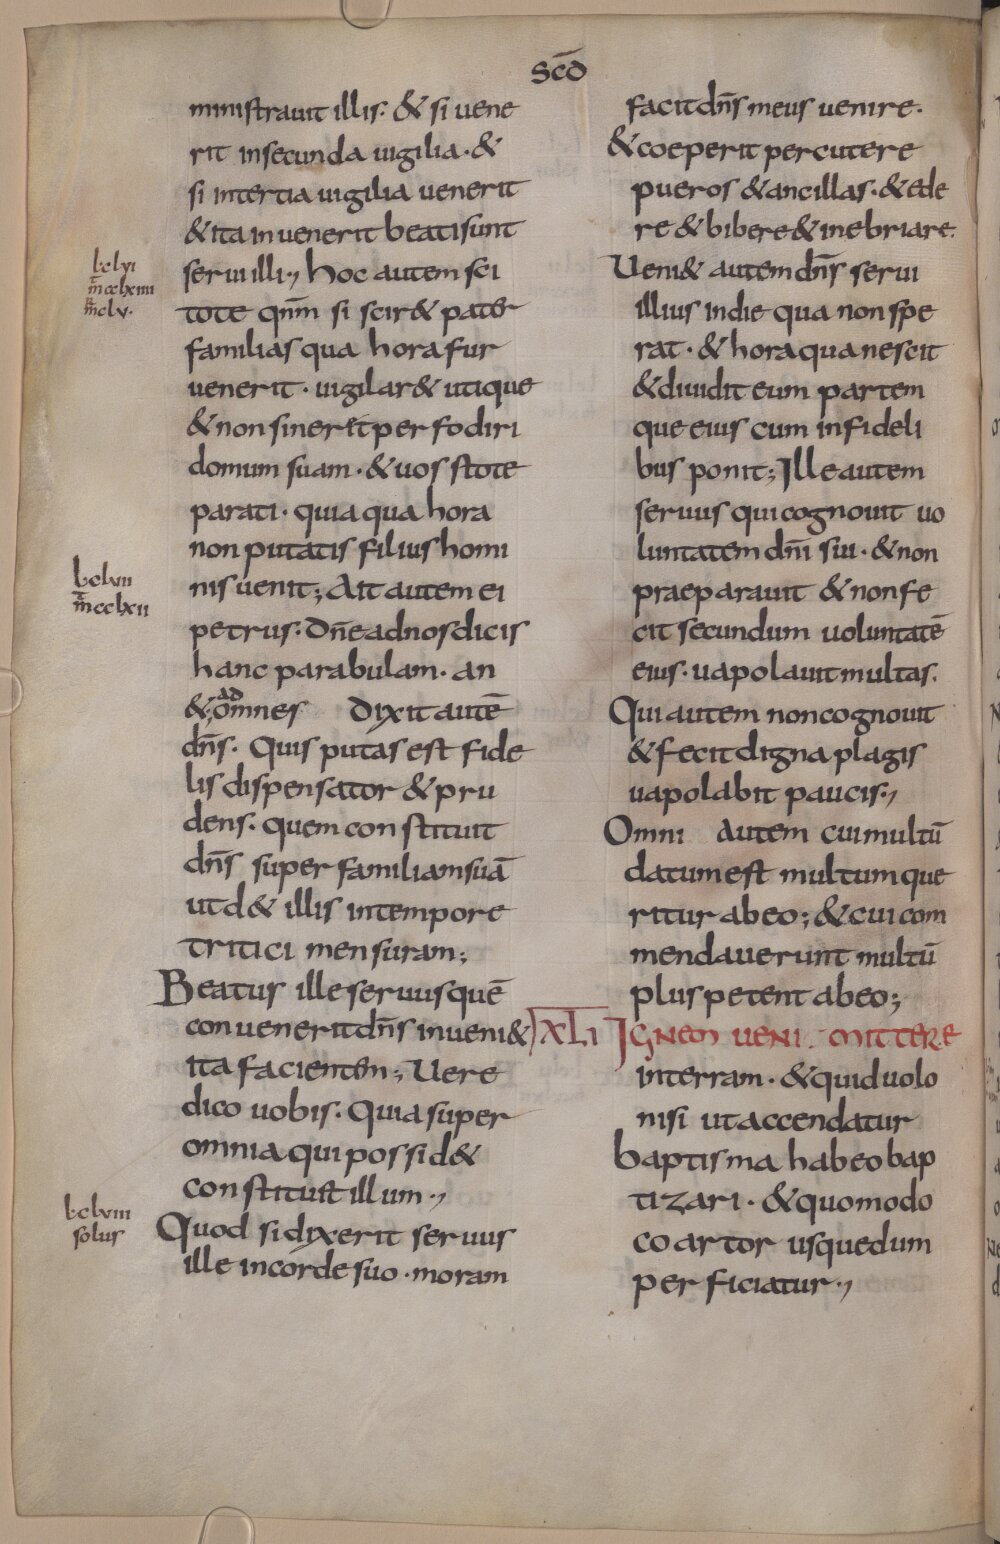 scd̄
ministrauit illis· & si uene
rit in secunda uigilia· &
si in tertia uigilia uenerit
& ita inuenerit beati sunt
serui illi·, hoc autem sci
tote qnm̄ si scir& pater
familias qua hora fur
uenerit· uigilar& utique
& non sineret perfodiri
domum suam· & uos stote
parati· quia qua hora
non putatis filius homi
nis uenit; Ait autem ei
petrus· Dn̄e ad nos dicis
hanc parabulam· an
ad
& omnes Dixit autē
dn̄s· Quis putas est fide
lis dispensator & pru
dens· quem constituit
dn̄s super familiam suā
ut d& illis in tempore
tritici mensuram;
Beatus ille seruus quē
conuenerit dn̄s inueni&
ita facientem; Uere
dico uobis· Quia super
omnia qui possid&
constituit illum·,
Quod si dixerit seruus
ille in corde suo· moram
l·clvi
m̄cclxiiii
m̄clv·
l·clvii
m̄cclxii
l·clviii
solus
facit dn̄s meus uenire·
& coeperit percutere
pueros & ancillas· & ede
re & bibere & inebriare·
Ueni& autem dn̄s serui
illius in die qua non spe
rat· & hora qua nescit
& diuidit eum partem
que eius cum infideli
bus ponit; Ille autem
seruus qui cognouit uo
luntatem dn̄i sui· & non
praeparauit & non fe
cit secundum uoluntatē
eius· uapolauit multas·
Qui autem non cognouit
& fecit digna plagis
uapolabit paucis·,
Omni autem cui multū
datum est multum que
ritur ab eo; & cui com
mendauerunt multū
plus petent ab eo;
XLI IGNEM UENI· MITTERE
in terram· & quid uolo
nisi ut accendatur
baptisma habeo bap
tizari· & quomodo
coartor usquedum
perficiatur·,